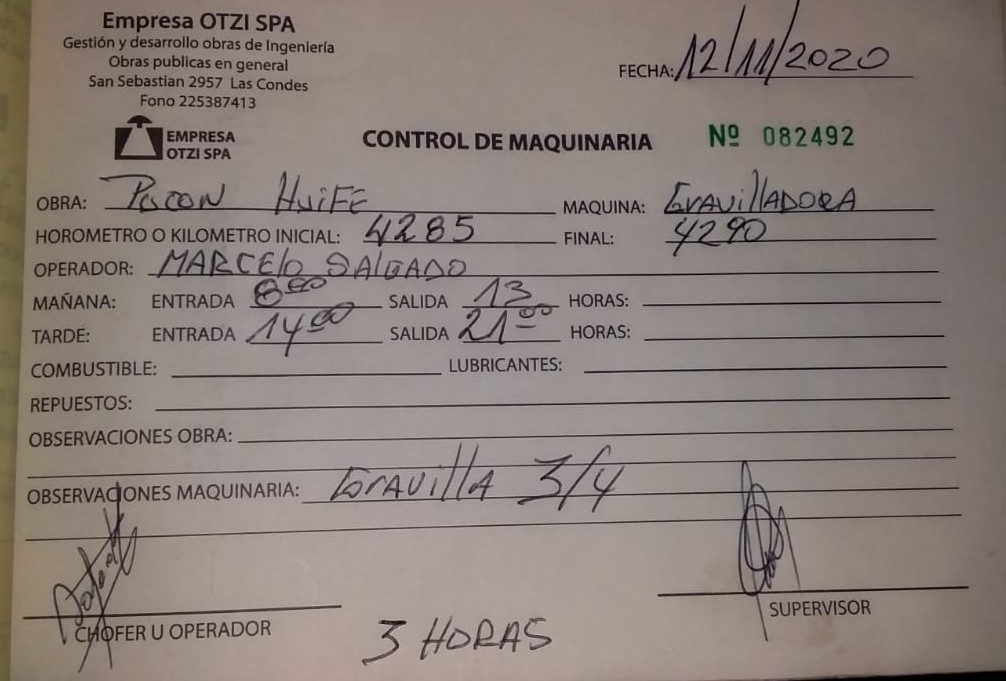 Empresa OTZI SPA
Gestión y desarrollo obras de Ingeniería
Obras publicas en general
San Sebastian 2957 Las Condes
Fono 225387413
FECHA: 12/11/2020
EMPRESA
OTZI SPA
CONTROL DE MAQUINARIA Nº 082492
OBRA: Pucon HuiFE MAQUINA: GRAVillADORA
HOROMETRO O KILOMETRO INICIAL: 4285 FINAL: 4290
OPERADOR: MARCElo SAlGADO
MAÑANA: ENTRADA 8:00 SALIDA 13 HORAS:
TARDE: ENTRADA 14:00 SALIDA 21:00 HORAS:
COMBUSTIBLE: LUBRICANTES:
REPUESTOS:
OBSERVACIONES OBRA:
OBSERVACIONES MAQUINARIA: GravillA 3/4
CHOFER U OPERADOR SUPERVISOR
3 HORAS